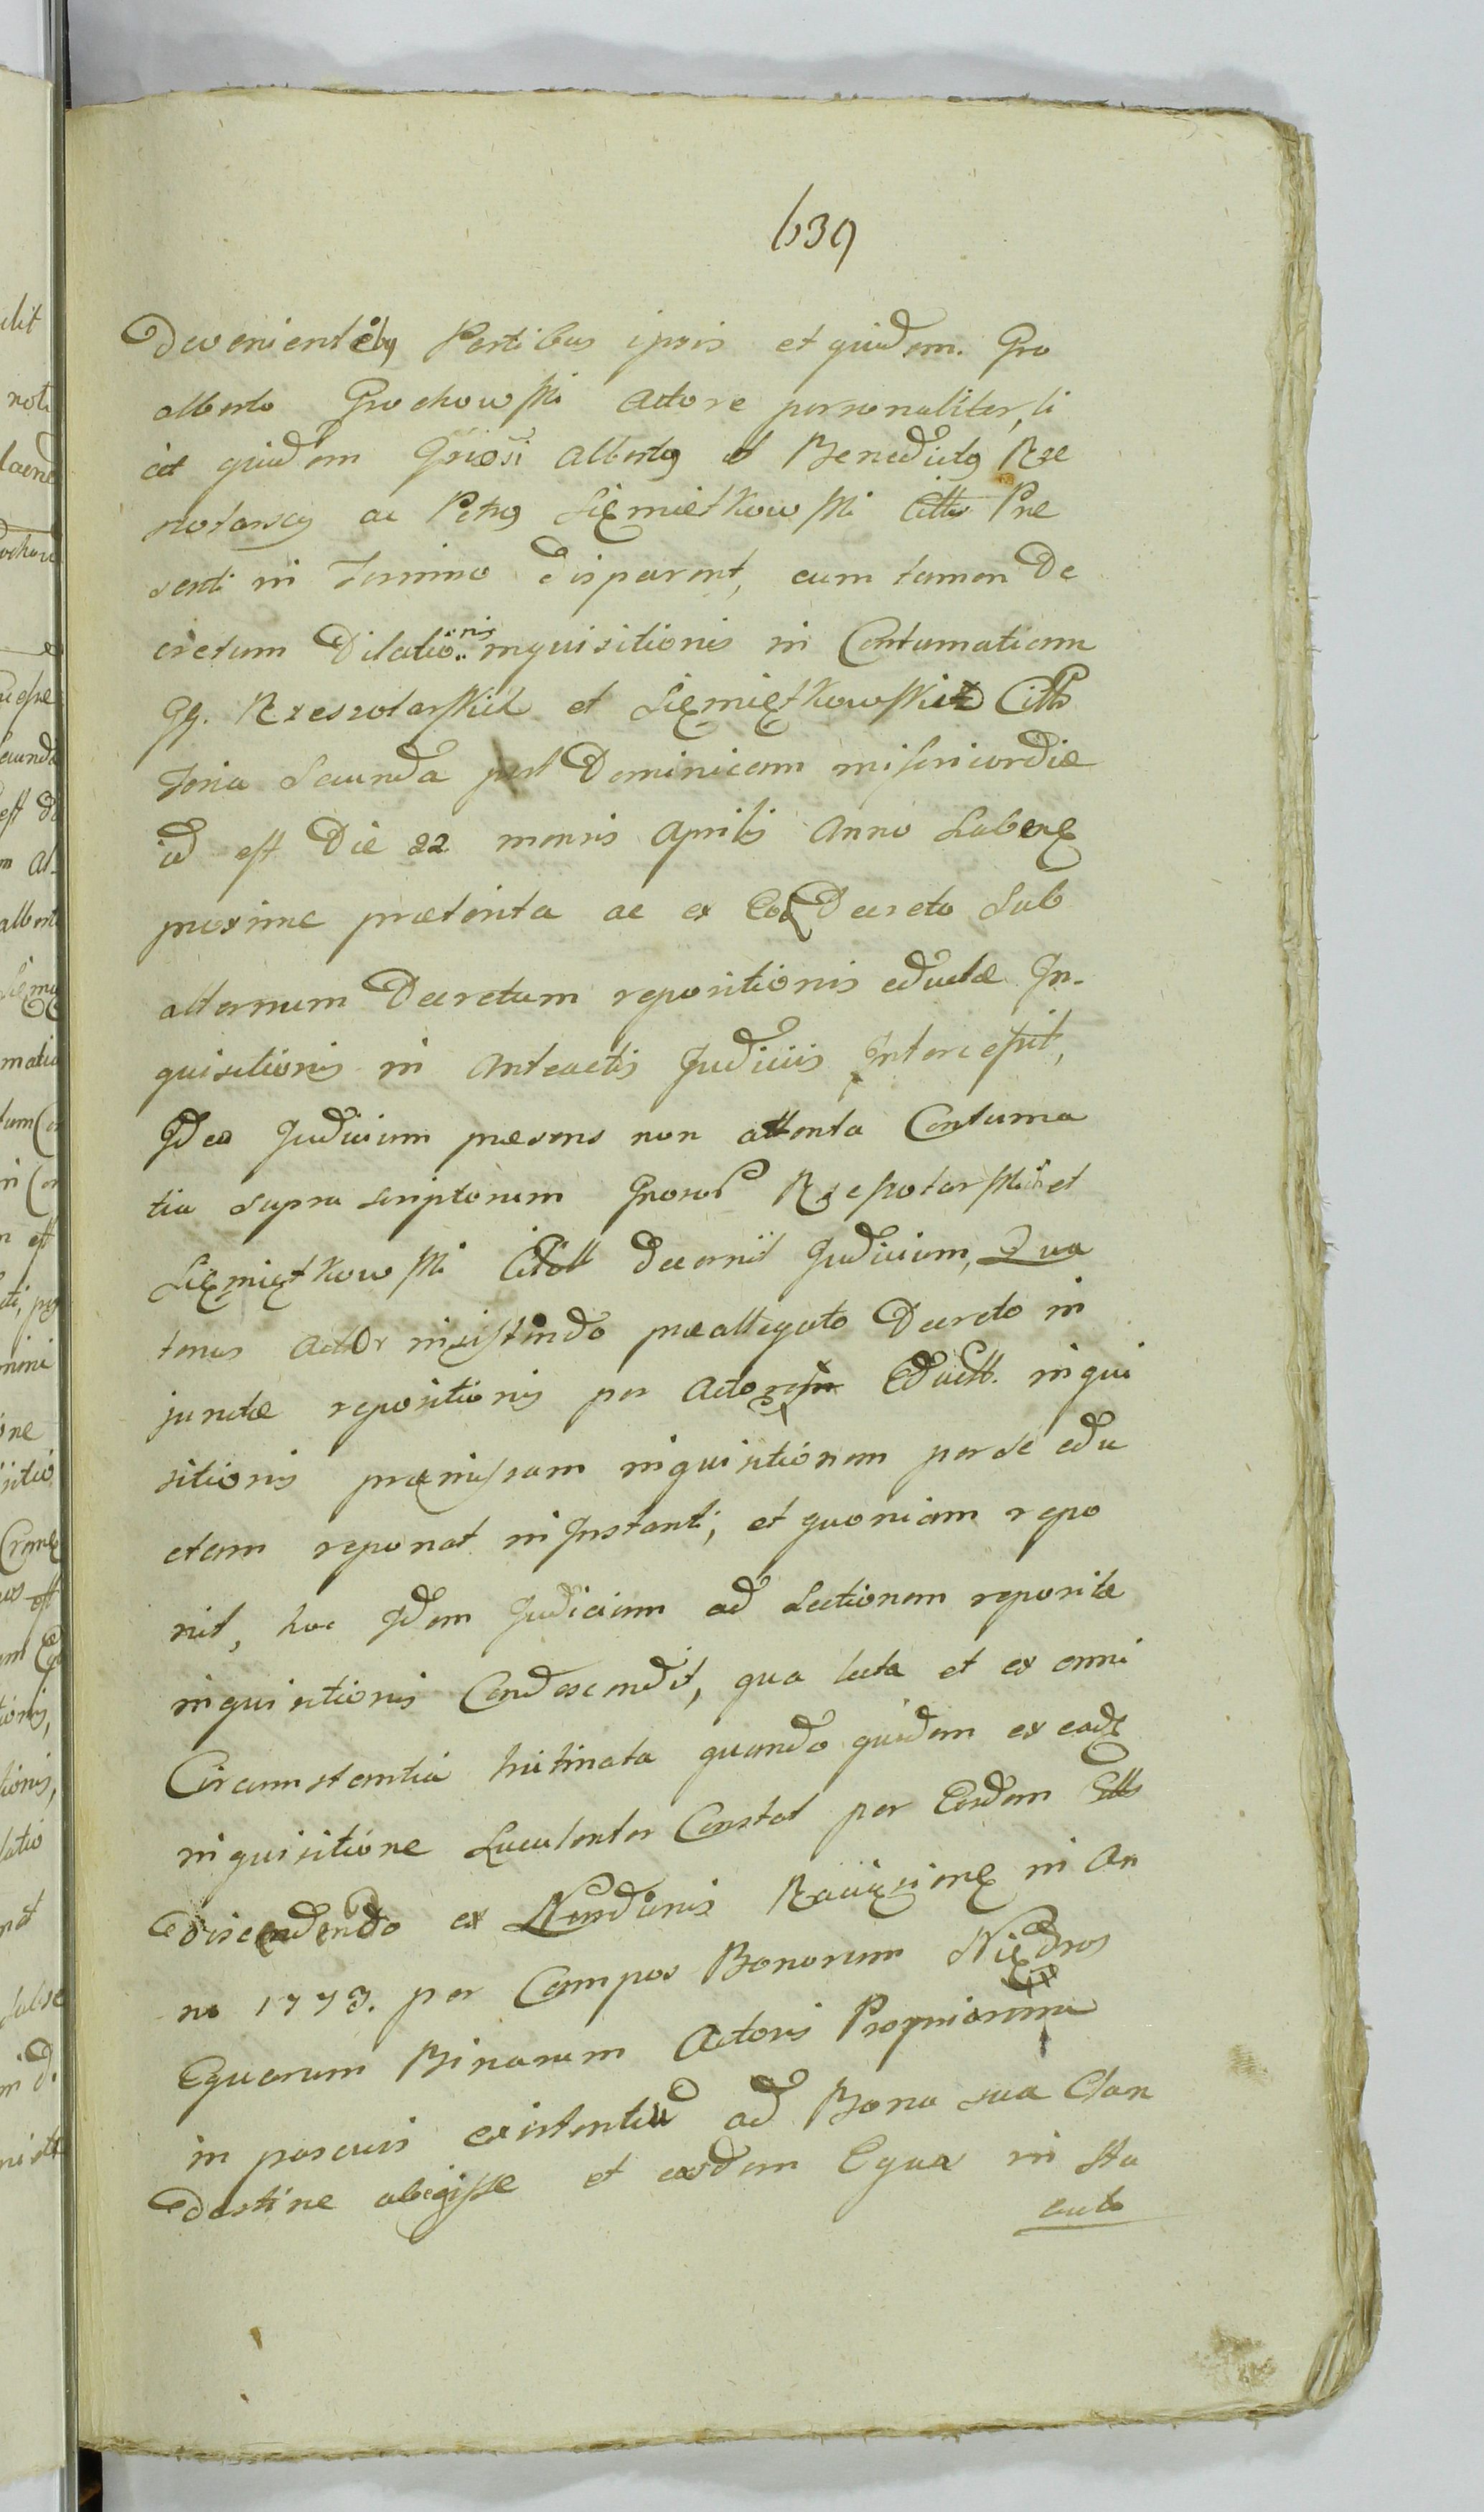 639
Devenientibg Partibus ipsis et quidem Gro
alberto Grochowski Actore personaliter, li
cet quidem Grosi Albertg et Benedictg Rze
szotarscy ac Petrg Siemiętkowski Citti Præ
senti in Termino disparent, cum tamen De
cretum Dilationis inquisitionis in Contumatiam
GG. Rzeszotarskich et Siemiętkowskich Citt
Feria Secunda post Dominicam misericordiæ
id est Die 22 mensis Aprilis Anno Laben
proxime præterita ac ex Eod Decreto Sub
alternum Decretum repositionis eductæ In-
quisitionis in Anteactis Judiciis Intercessit,
Ideo Judicium præsens non attenta Contuma
tia supra scriptorum Grosor Rzeszotarskich et
Siemiętkowski Citott decernit Judicium, Qua
tenus Actor insistendo præallegato Decreto in
junctæ repositionis per Actorem Eductt. inqui
sitionis præmissam inquisitionem per se edu
ctam reponat in Instanti, et quoniam repo
nit, hoc Idem Judicium ad Lectionem repositæ
inquisitionis Condescendit, qua lecta et ex omni
Circumstantia trutinata quando quidem ex ead
inquisitione Luculenter Constat per Eosdem Citts
discedendo ex Nundinis Raciąż in An
no 1773. per Campos Bonorum
Equarum Binarum Actoris Propriarum
in pascuis existentiu ad Bona sua Clan
destine abegisse et easdem Equas in Sta
bulo